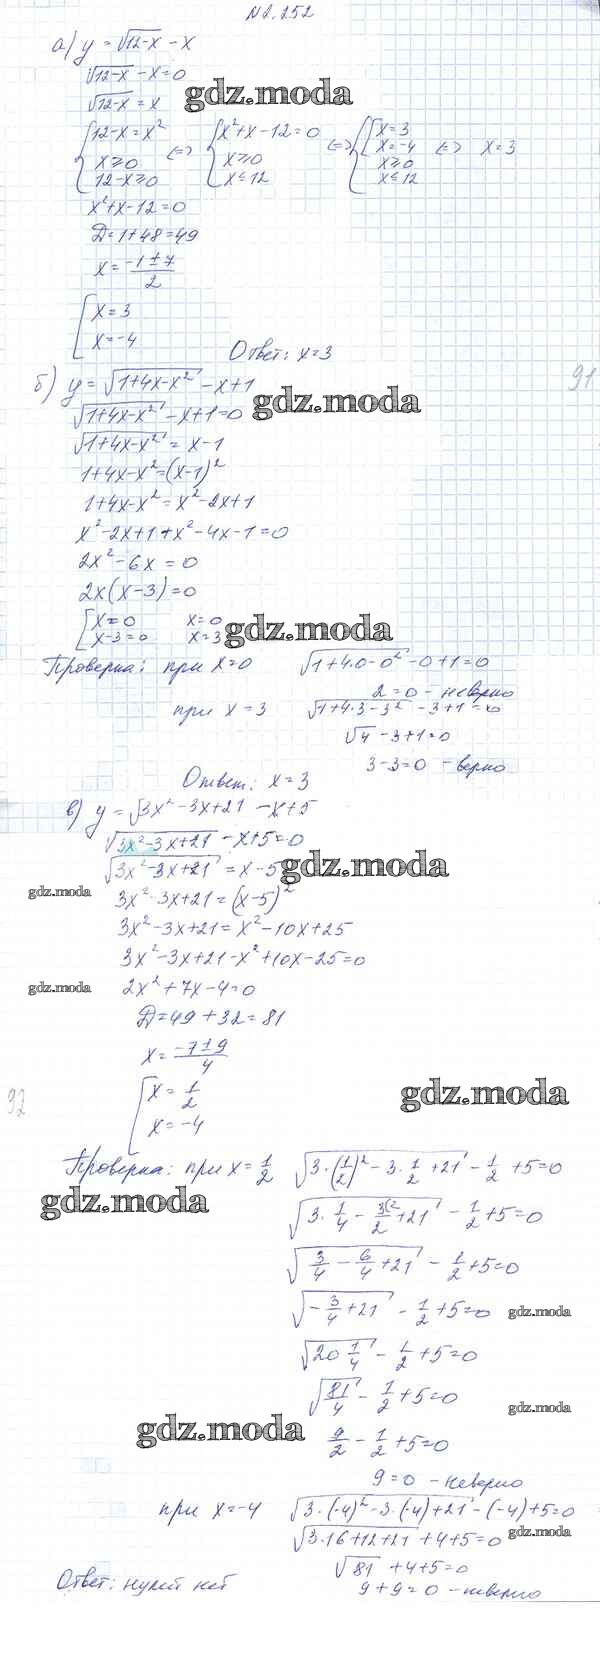 N 2.252
а) y = √12-x - x
√12-x - x = 0
√12-x = x
gdz.moda
{12-x = x² x⩾0 12-x⩾0 <=> {x²+x-12=0 x⩾0 x⩽12 <=> {[x=3 x=-4 x⩾0 x⩽12 <=> x=3
x²+x-12=0
Д=1+48=49
x = -1±7/2
[x=3
x=-4
Ответ: x=3
91
б) y = √1+4x-x² - x+1
gdz.moda
√1+4x-x² - x+1=0
√1+4x-x² = x-1
1+4x-x²=(x-1)²
1+4x-x² = x²-2x+1
x²-2x+1+x²-4x-1=0
2x²-6x=0
2x(x-3)=0
[x=0 x=0
x-3=0 x=3
gdz.moda
Проверка: при x=0 √1+4·0-0² -0+1=0
2=0 - неверно
при x=3 √1+4·3-3² -3+1=0
√4 -3+1=0
3-3=0 - верно
Ответ: x=3
в) y = √3x²-3x+21 - x+5
√3x²-3x+21 - x+5=0
√3x²-3x+21 = x-5
gdz.moda
gdz.moda
3x²-3x+21=(x-5)²
3x²-3x+21=x²-10x+25
3x²-3x+21-x²+10x-25=0
gdz.moda
2x²+7x-4=0
Д=49+32=81
x = -7±9/4
[x = 1/2
x=-4
gdz.moda
92
Проверка: при x=1/2 √3·(1/2)²-3·1/2+21 - 1/2 +5=0
gdz.moda
√3·1/4 - 3/2+21 - 1/2+5=0
√3/4 - 6/4+21 - 1/2+5=0
√-3/4+21 - 1/2+5=0
gdz.moda
√20 1/4 - 1/2+5=0
√81/4 - 1/2+5=0
gdz.moda
gdz.moda
9/2 - 1/2+5=0
9=0 - неверно
при x=-4 √3·(-4)²-3·(-4)+21 -(-4)+5=0
√3·16+12+21 +4+5=0
gdz.moda
√81 +4+5=0
9+9=0 - неверно
Ответ: нулей нет